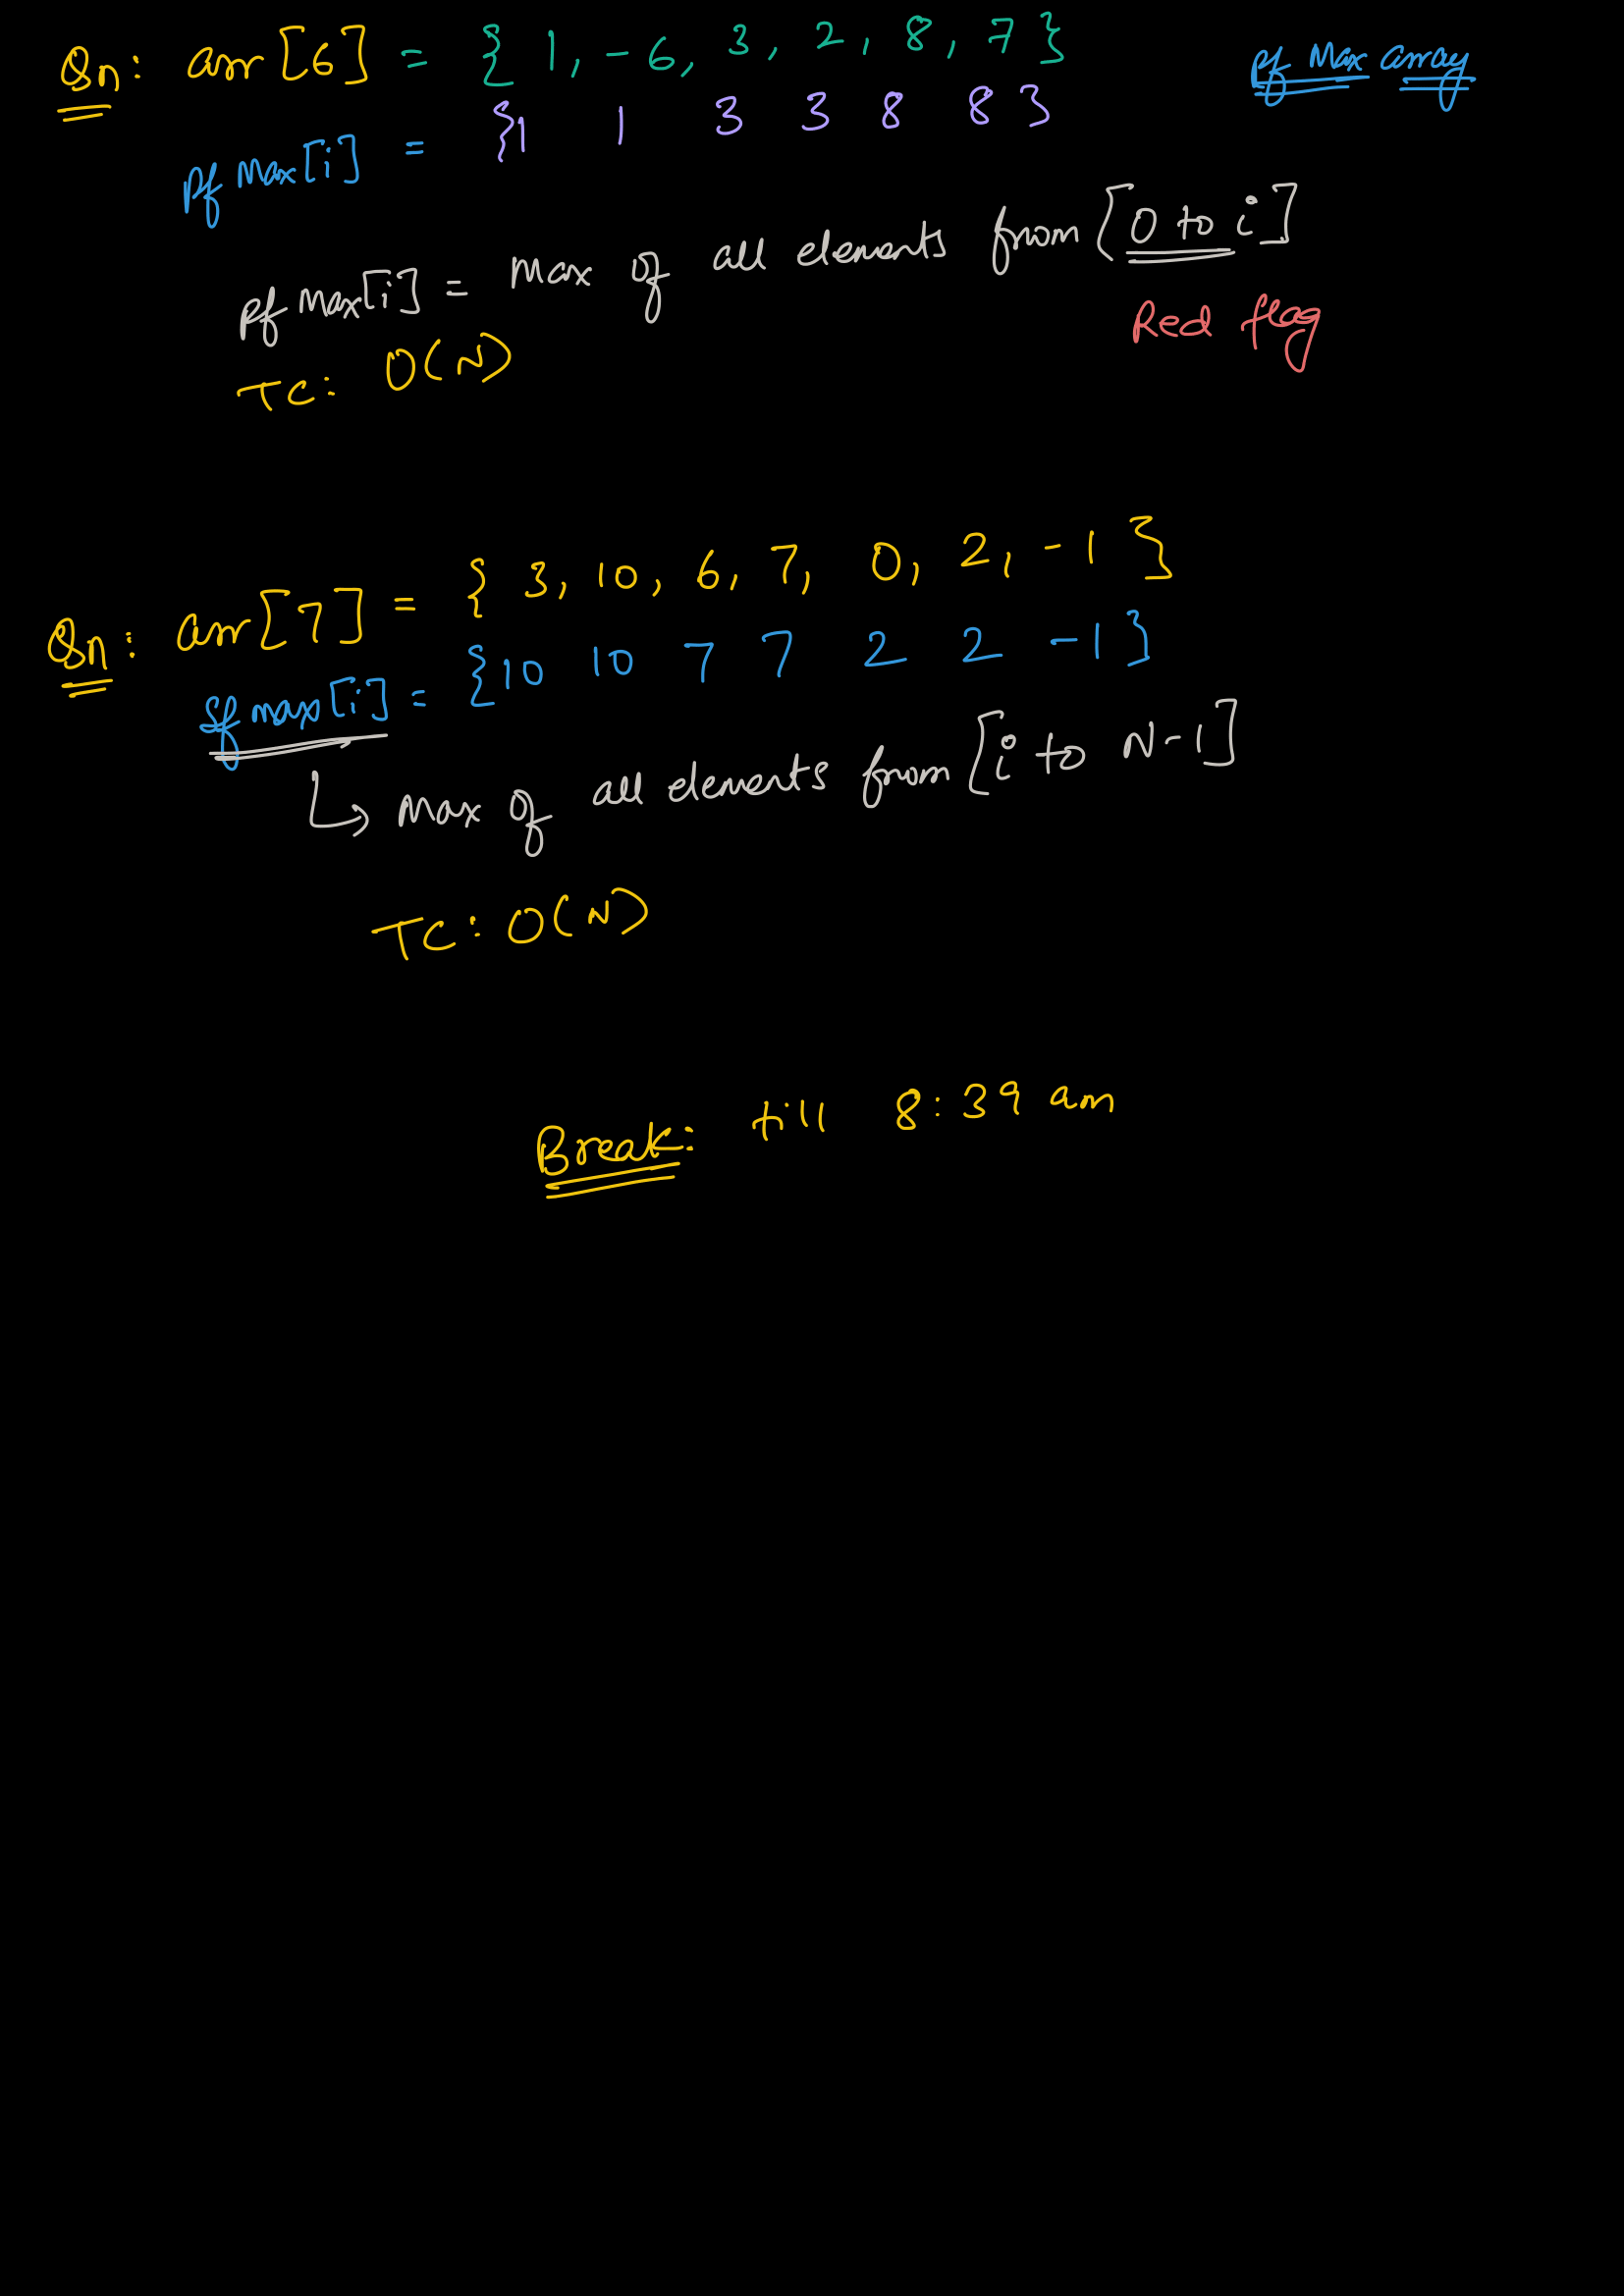 Qn: arr[6] = { 1, -6, 3, 2, 8, 7 }
pf Max array
pf Max[i] = {1 1 3 3 8 8 }
pf Max[i] = Max of all elements from [0 to i]
Red flag
TC: O(N)
Qn: arr[7] = { 3, 10, 6, 7, 0, 2, -1 }
sf max[i] = {10 10 7 7 2 2 -1 }
↳ Max of all elements from [i to N-1]
TC: O(N)
Break: till 8:39 am